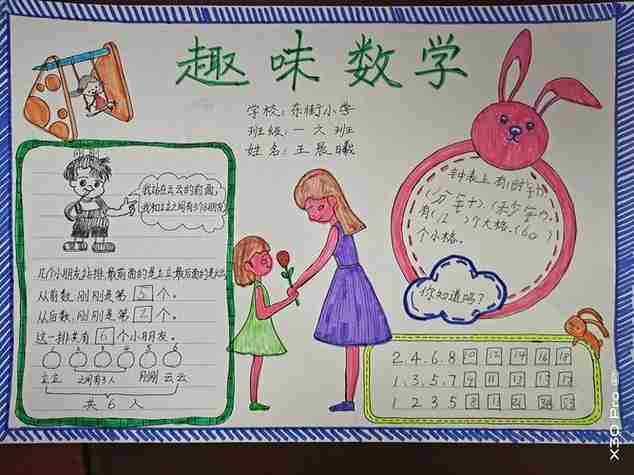 趣味数学
学校:东街小学
班级:一六班
姓名:王晨曦
我站在云云的前面,
我和立立之间有3个小朋友
几个小朋友站排,最前面的是立立,最后面的是云云
从前数,刚刚是第5个。
从后数,刚刚是第2个。
这一排共有6个小朋友。
立立 之间有3人 刚刚 云云
共6人
钟表上有(时针)
(分针).(秒针).
有(12)个大格.(60)
个小格.
你知道吗?
2.4.6.8 10 12 14 16 18
1.3.5.7 9 11 13
1 2 3 5 8 21
X30 Pro